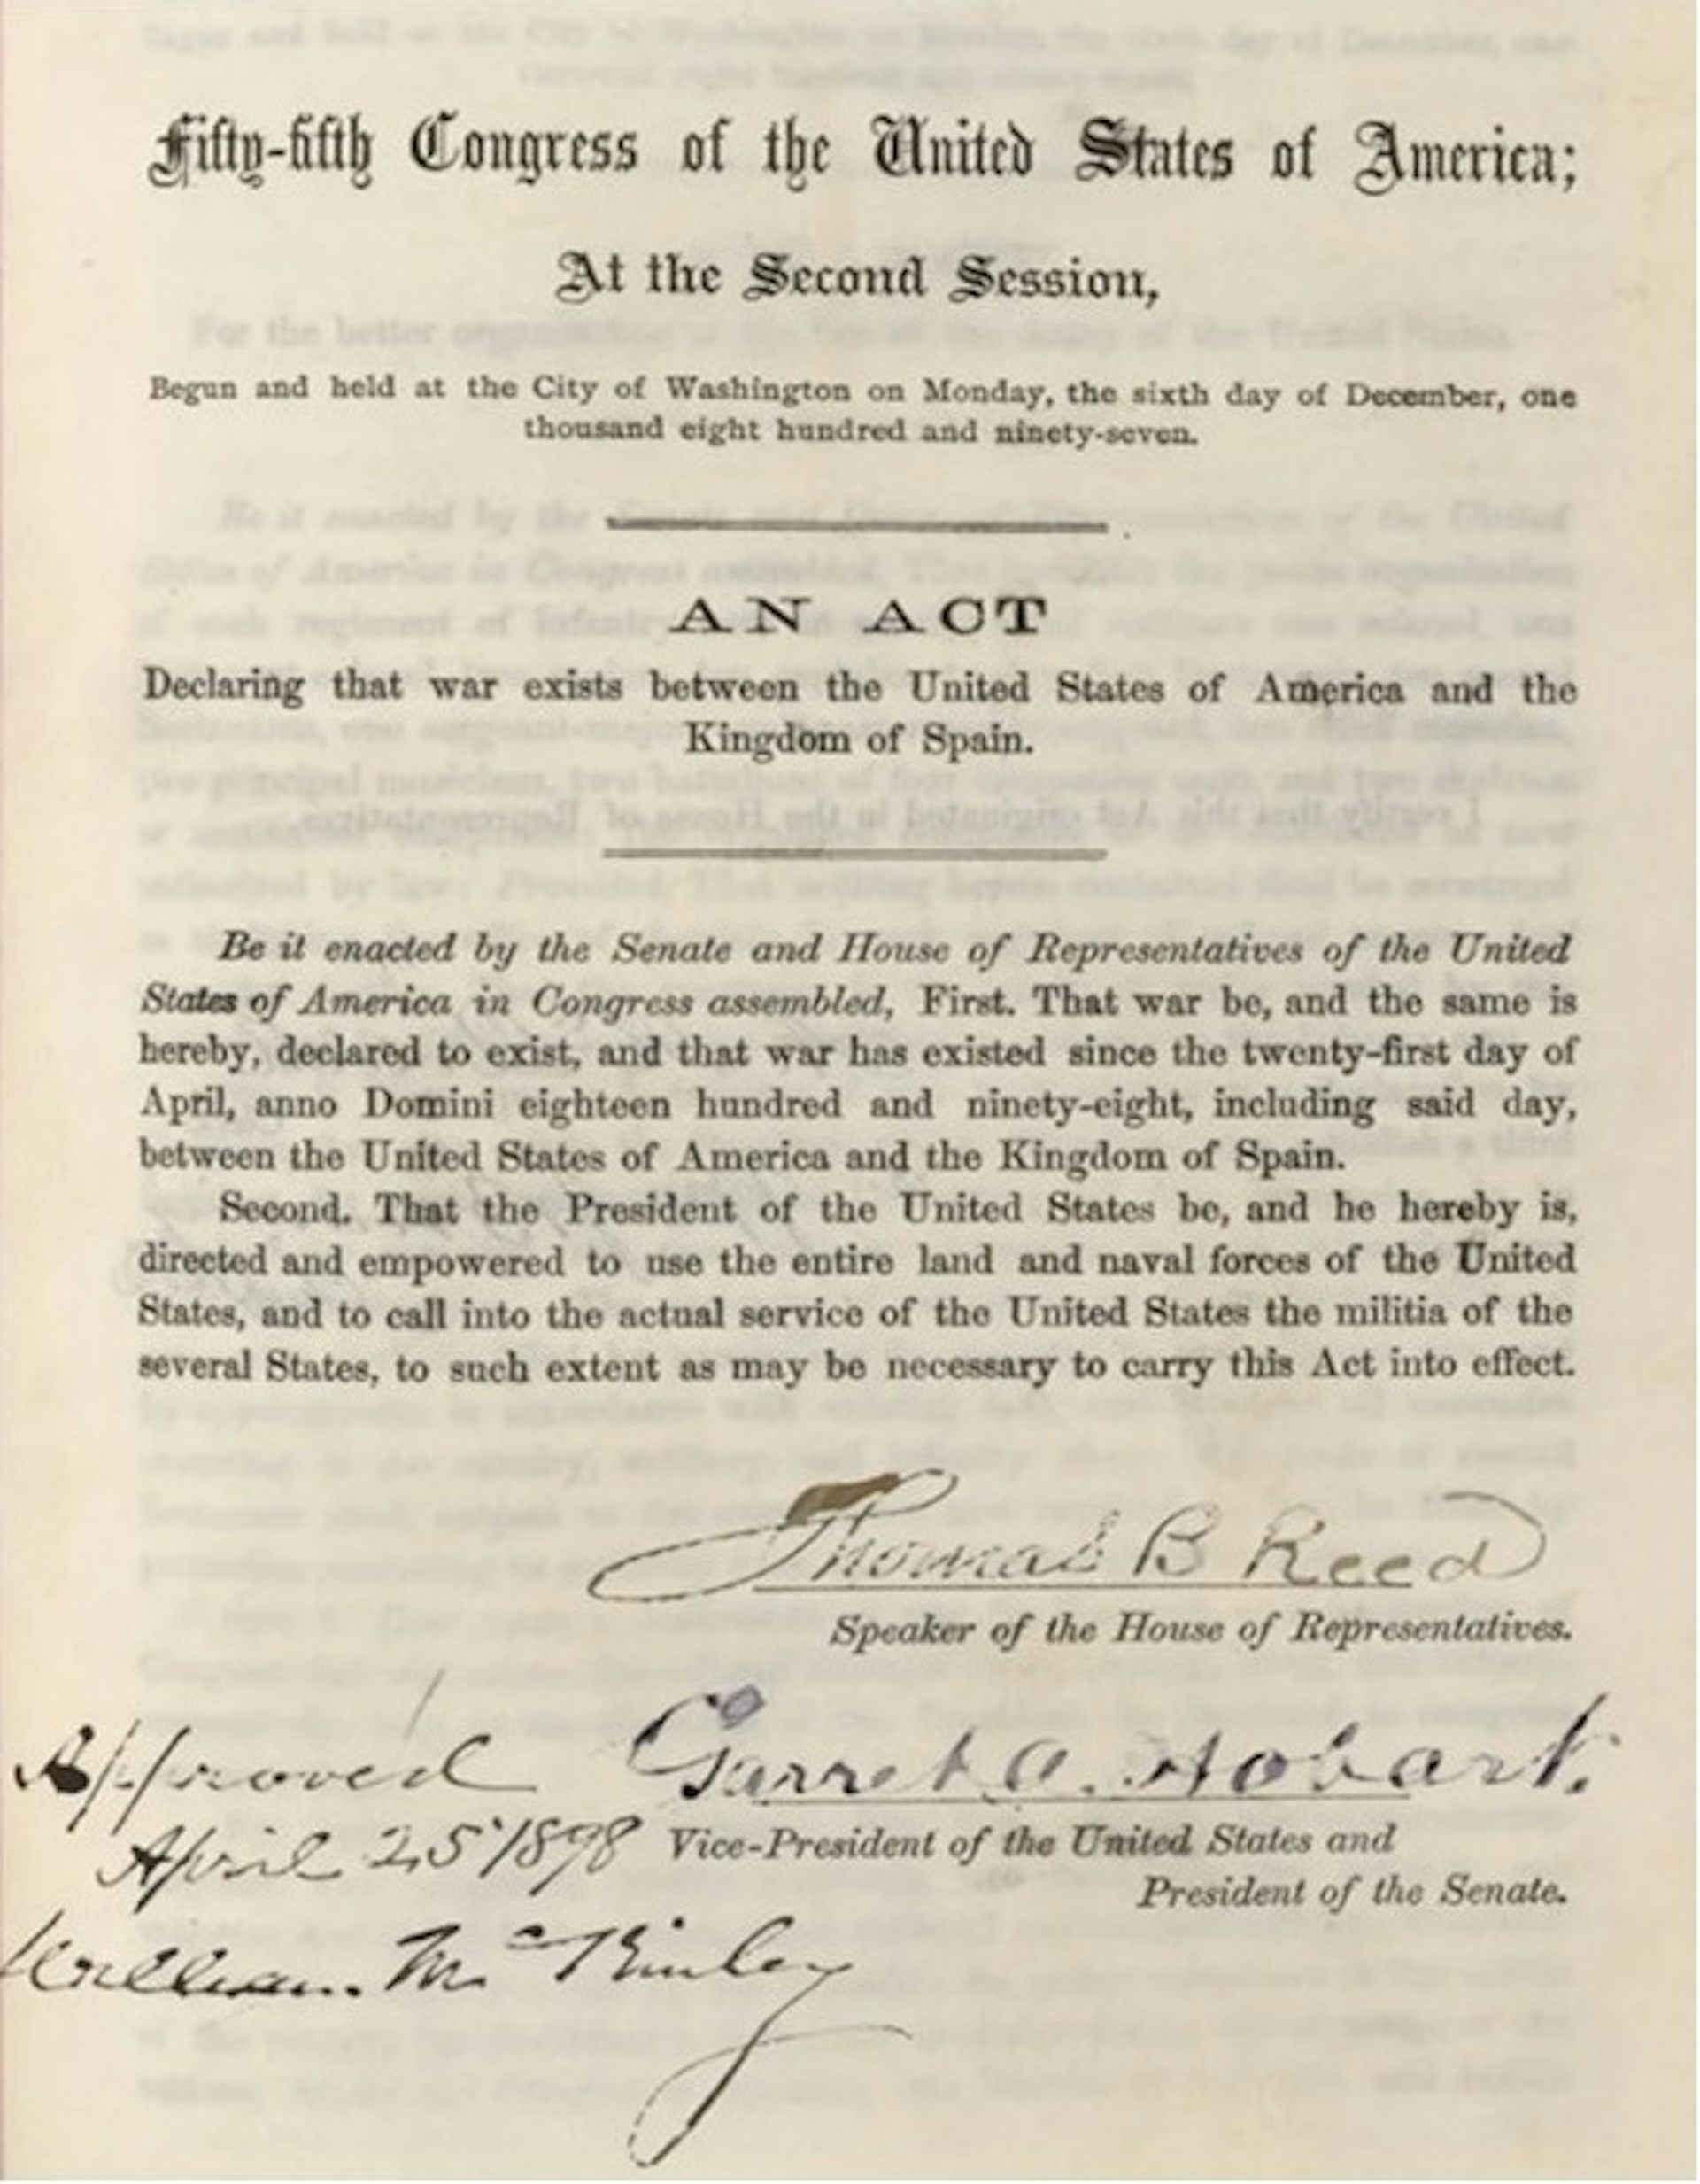 Fifty-fifth Congress of the United States of America;
At the Second Session,
Begun and held at the City of Washington on Monday, the sixth day of December, one
thousand eight hundred and ninety-seven.
AN ACT
Declaring that war exists between the United States of America and the
Kingdom of Spain.
I certify that this Act originated in the House of Representatives.
Be it enacted by the Senate and House of Representatives of the United
States of America in Congress assembled, First. That war be, and the same is
hereby, declared to exist, and that war has existed since the twenty-first day of
April, anno Domini eighteen hundred and ninety-eight, including said day,
between the United States of America and the Kingdom of Spain.
Second. That the President of the United States be, and he hereby is,
directed and empowered to use the entire land and naval forces of the United
States, and to call into the actual service of the United States the militia of the
several States, to such extent as may be necessary to carry this Act into effect.
Thomas B Reed
Speaker of the House of Representatives.
Approved Garret A. Hobart.
April 25 1898 Vice-President of the United States and
President of the Senate.
William McKinley